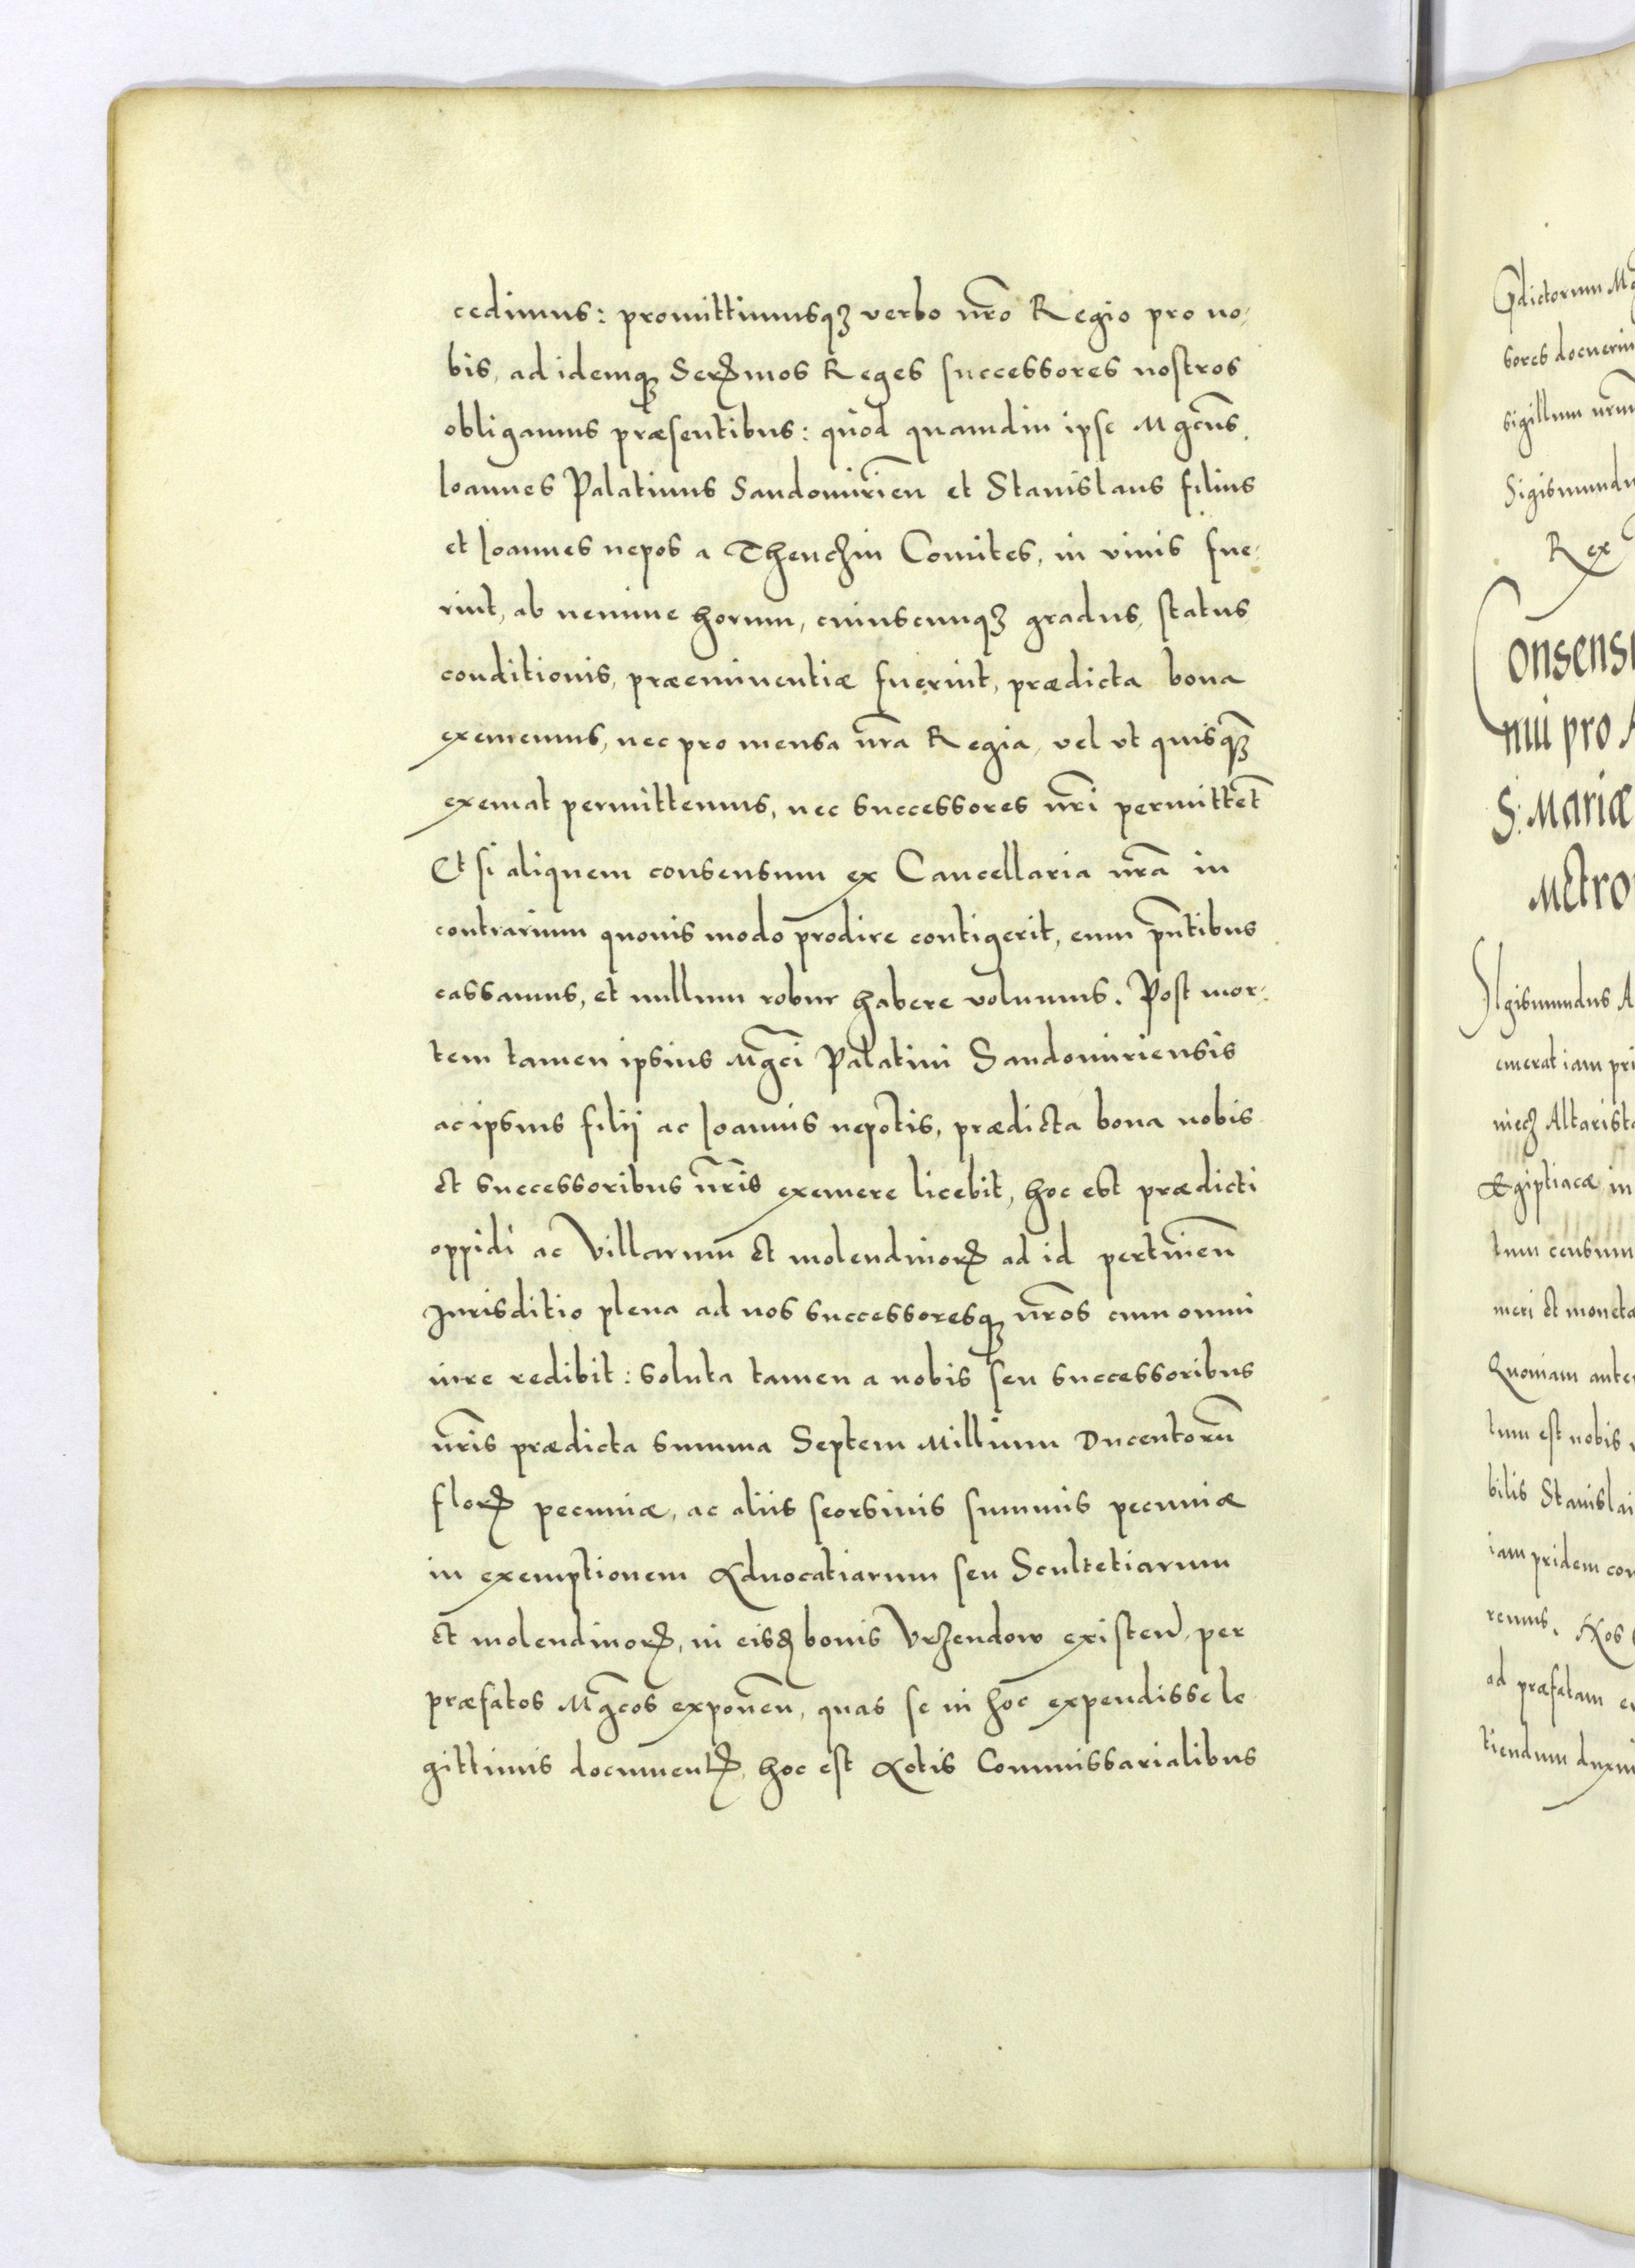 cedimus: promittimusqꝫ verbo nr̃o Regio pro no-
bis, ad idemqꝫ Serꝫmos Reges successores nostros
obligamus præsentibus: quòd quamdiu ipse Mgcũs
Ioannes Palatinus Sandomiriẽn et Stanislaus filius
et Ioannes nepos a Thenchin Comites, in viuis fue-
rint, ab nemine horum, cuiuscumqꝫ gradus, status
conditionis, præeminentiæ fuerint, prædicta bona
exememus, nec pro mensa nr̃a Regia, vel vt quisqꝫ
exemat permittemus, nec successores nr̃i permittẽt
Et si aliquem consensum ex Cancellaria nr̃a in
contrarium quouis modo prodire contigerit, eum pñtibus
cassamus, et nullum robur habere volumus. Post mor-
tem tamen ipsius Mg̃ci Palatini Sandomiriensis
ac ipsius filij ac Ioannis nepotis, prædicta bona nobis
et successoribus nr̃is exemere licebit, hoc est prædicti
oppidi ac Villarum et molendinorꝫ ad id pertinẽn
Jurisditio plena ad nos successoresqꝫ nr̃os cum omni
iure redibit: soluta tamen a nobis seu successoribus
nr̃is prædicta summa Septem Millium Ducentorũ
florꝫ pecuniæ, ac aliis seorsiuis summis pecuniæ
in exemptionem Aduocatiarum seu Scultetiarum
et molendinorꝫ, in eisdꝫ bonis Vrzendow existeñ, per
præfatos Mg̃cos exponẽn, quas se in hoc expendisse le
gittimis documentꝫ, hoc est Actis Commissarialibus
Prædictorum
sores docuerin
sigillum nr̃m
Sigismundu
Rex
Consensu
nui pro A
S: Mariæ
Metro
SIgismundus A
emerat iam pri
Altarist
Egiptiacæ in
tum censum
meri et moneta
Quoniam aute
tum est nobis
bilis Stanislai
iam pridem con
remus. Nos
ad præfatam
tiendum duxi